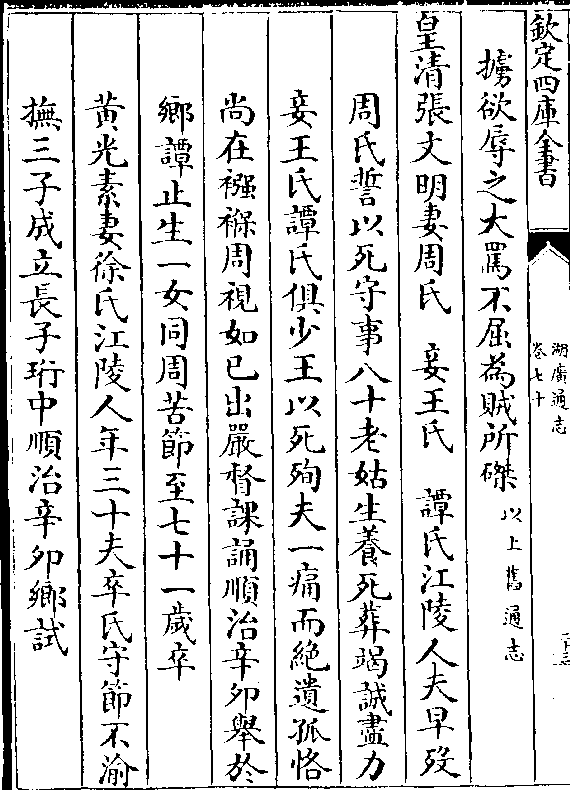 欽定四庫全書
湖廣通志
卷七十
擄欲辱之大罵不屈為賊所磔以上舊通志
皇清張文明妻周氏 妾王氏 譚氏江陵人夫早歿
周氏誓以死守事八十老姑生養死葬竭誠盡力
妾王氏譚氏俱少王以死殉夫一痛而絕遺孤恪
尚在襁褓周視如已出嚴督課誦順治辛卯舉於
鄉譚止生一女同周苦節至七十一歲卒
黃光素妻徐氏江陵人年三十夫卒氏守節不渝
撫三子成立長子珩中順治辛卯鄉試